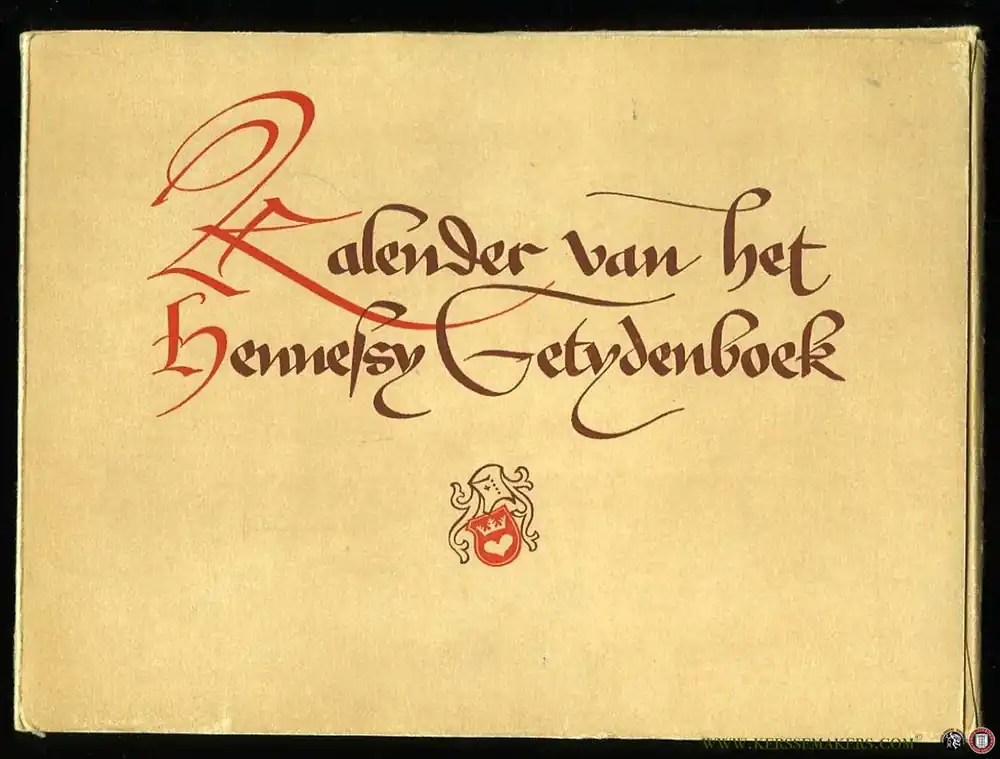 Kalender van het
Henneſsy Getydenboek
WWW.KERSSEMAKERS.COM